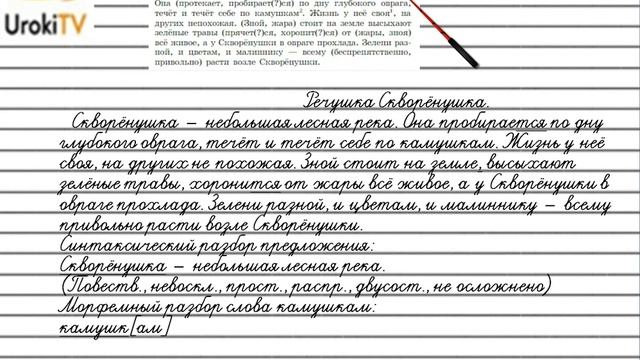 UrokiTV
Она (протекает, пробирает(?)ся) по дну глубокого оврага,
течёт и течёт себе по камушкам². Жизнь у неё своя¹, на
других непохожая. (Зной, жара) стоит на земле высыхают
зелёные травы (прячет(?)ся, хоронит(?)ся) от (жары, зноя)
всё живое, а у Скворёнушки в овраге прохлада. Зелени раз-
ной, и цветам, и малиннику — всему (беспрепятственно,
привольно) расти возле Скворёнушки.
Речушка Скворёнушка.
Скворёнушка – небольшая лесная река. Она пробирается по дну
глубокого оврага, течёт и течёт себе по камушкам. Жизнь у неё
своя, на других не похожая. Зной стоит на земле, высыхают
зелёные травы, хоронится от жары всё живое, а у Скворёнушки в
овраге прохлада. Зелени разной, и цветам, и малиннику – всему
привольно расти возле Скворёнушки.
Синтаксический разбор предложения:
Скворёнушка – небольшая лесная река.
(Повеств., невоскл., прост., распр., двусост., не осложнено)
Морфемный разбор слова камушкам:
камушк[ам]